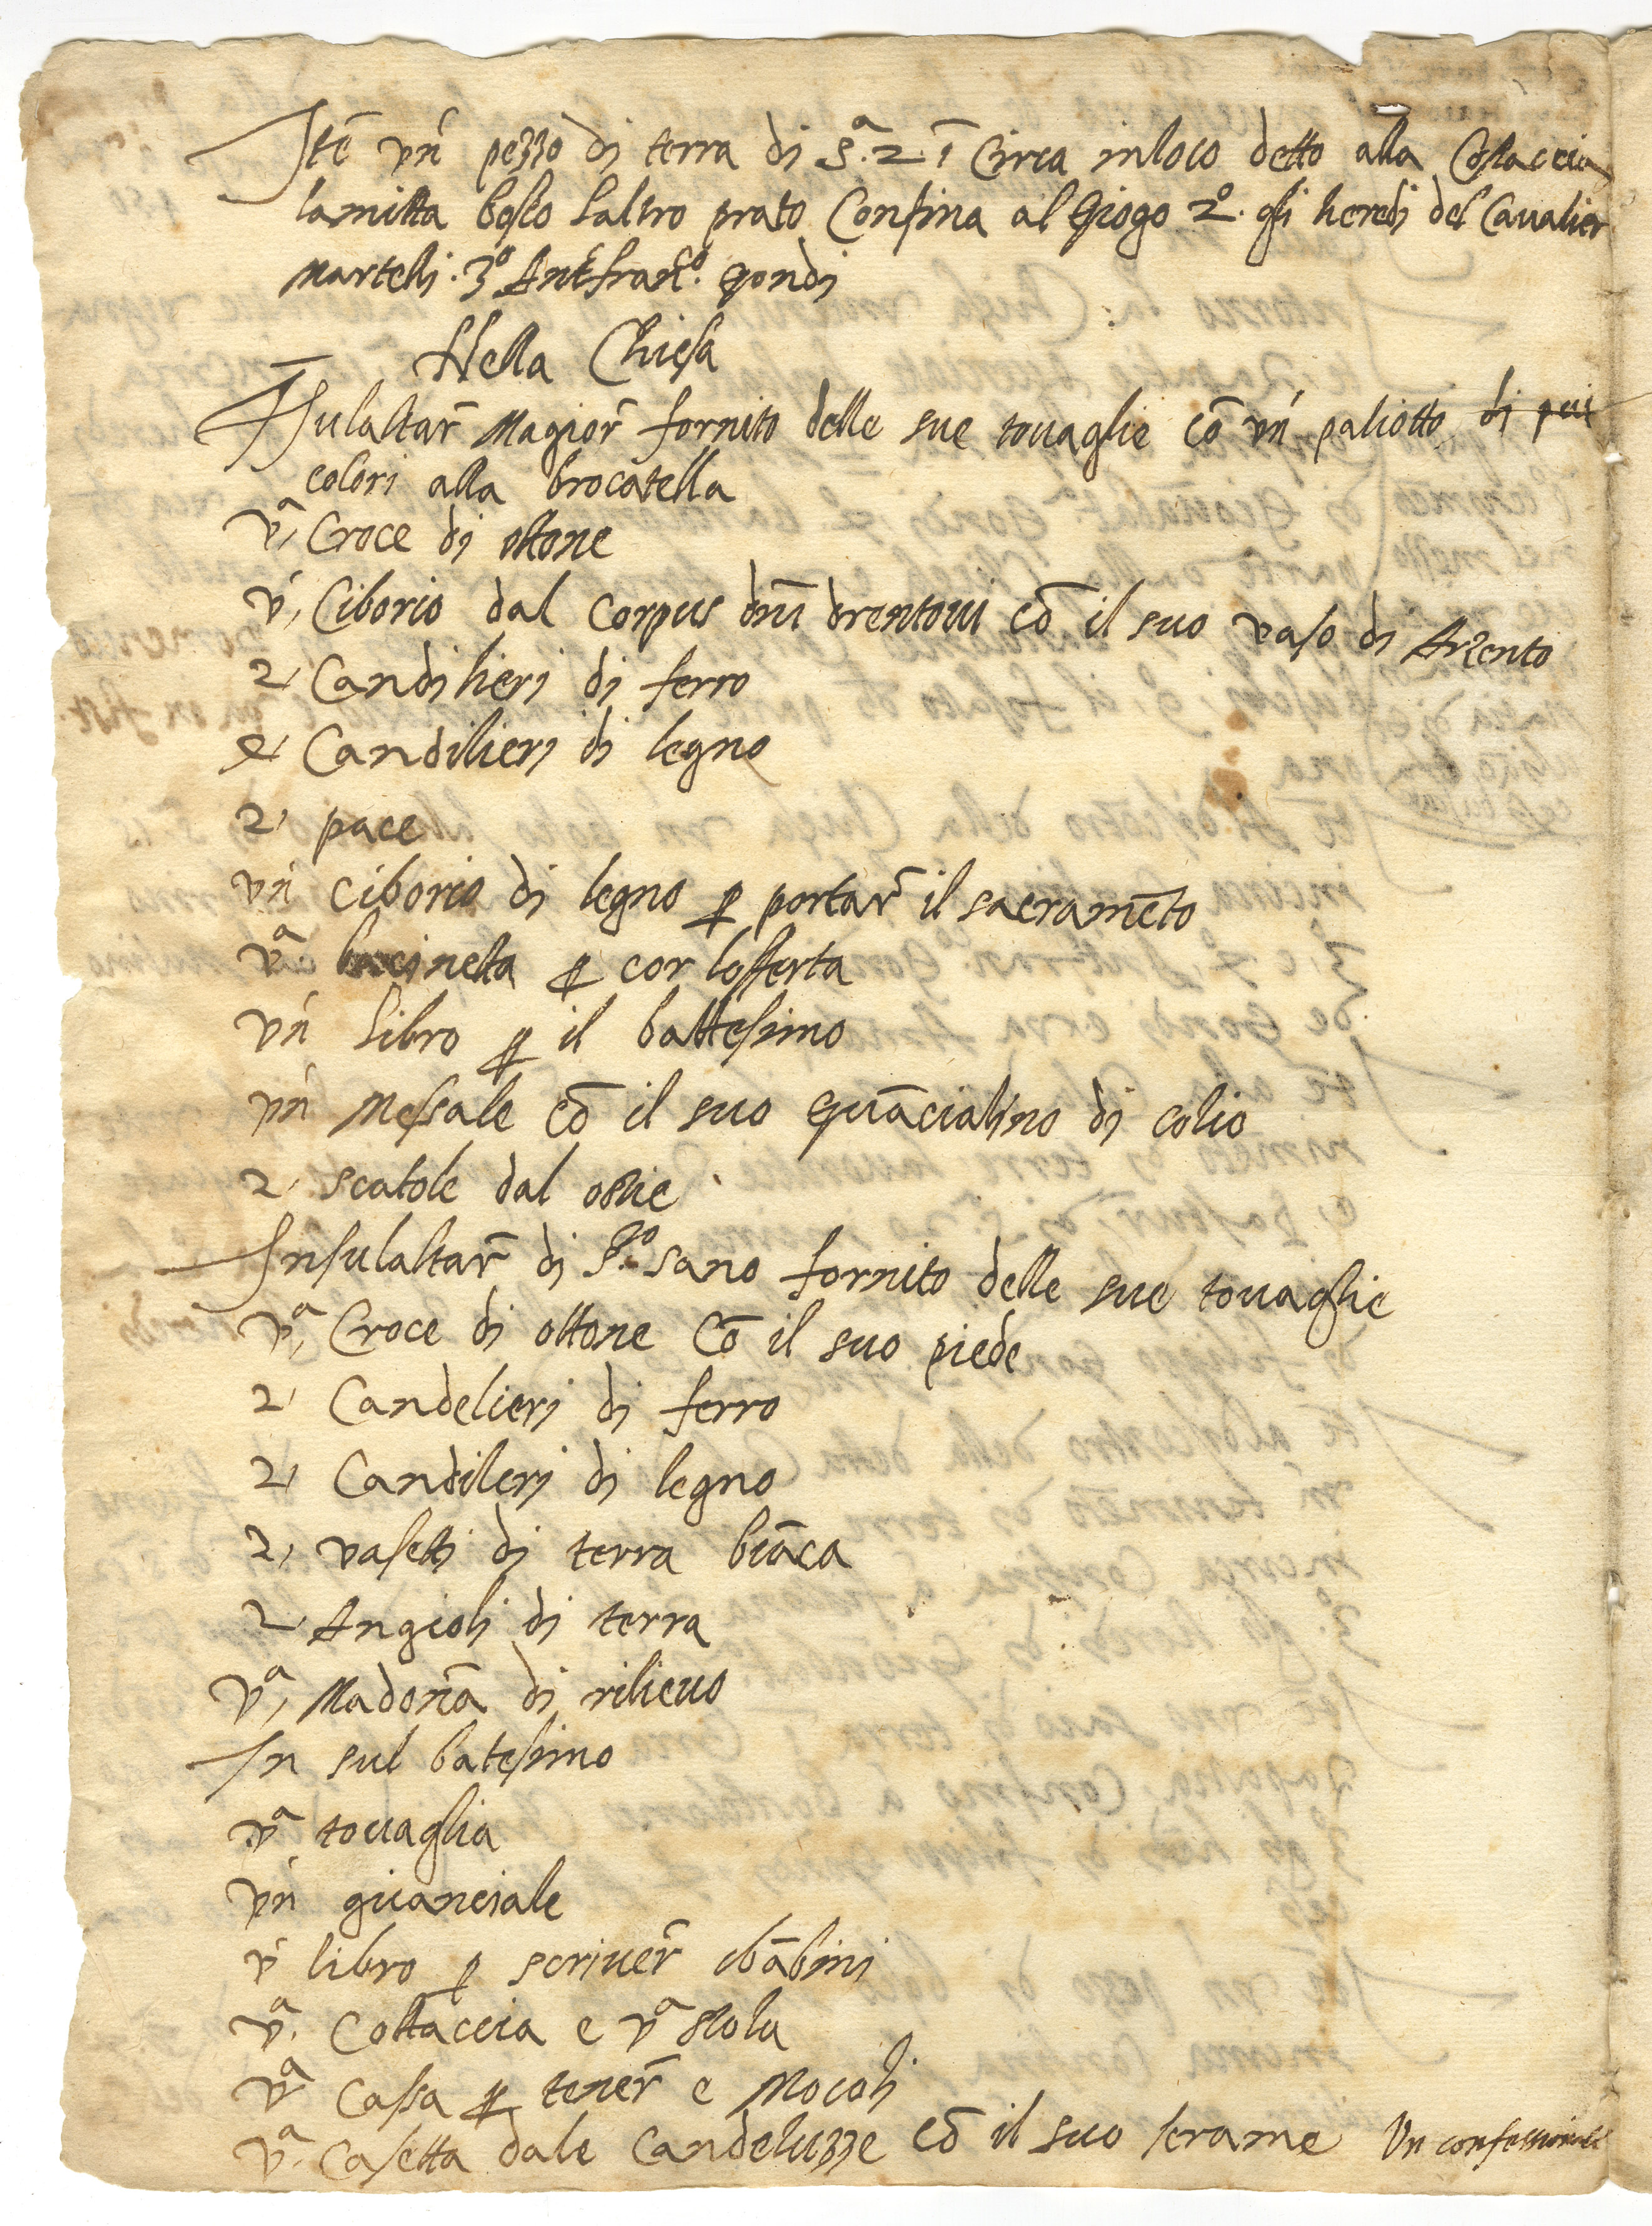 Itē vń pezzo di terra di sª. 2. i Circa in loco detto alla Costaccia
lamitta bosco laltro prato Confina al Giogo 2º. gli heredi del Caualier
Martelli. 3º Antº franº. Gondi
Nella Chiesa
Insulaltar̃ Magior̃ fornito delle sue touaglie cō vń paliotto di piu
colori alla brocatella
vª, Croce di ottone
v́, Ciborio dal Corpus dn̄i drentoui cō il suo vaso di Argento
2 Candilieri di ferro
e Candilieri di legno
2 pace
vń ciborio di legno ꝑ portar̃ il sacramēto
vª. bacinetta ꝑ cor lofferta
vń libro ꝑ il battesimo
vń Messale cō il suo guācialino di colio
2 scatole dal ostie
Insulaltar̃ di Sº. sano fornito delle sue touaglie
vª, Croce di ottone Cō il suo piede
2 Candelieri di ferro
2 Candileri di legno
2, vasetti di terra biāca
2 Angioli di terra
vª, Madoña di rilieuo
In sul batesimo
vª touaglia
vń guanciale
v́ libro ꝑ scriuer̃ ibābini
vª. Cottaccia e vª stola
vª Cassa ꝑ tener̃ e Mocoli
vª. Casetta dale Candeluzze cō il suo serame Vn confessionale